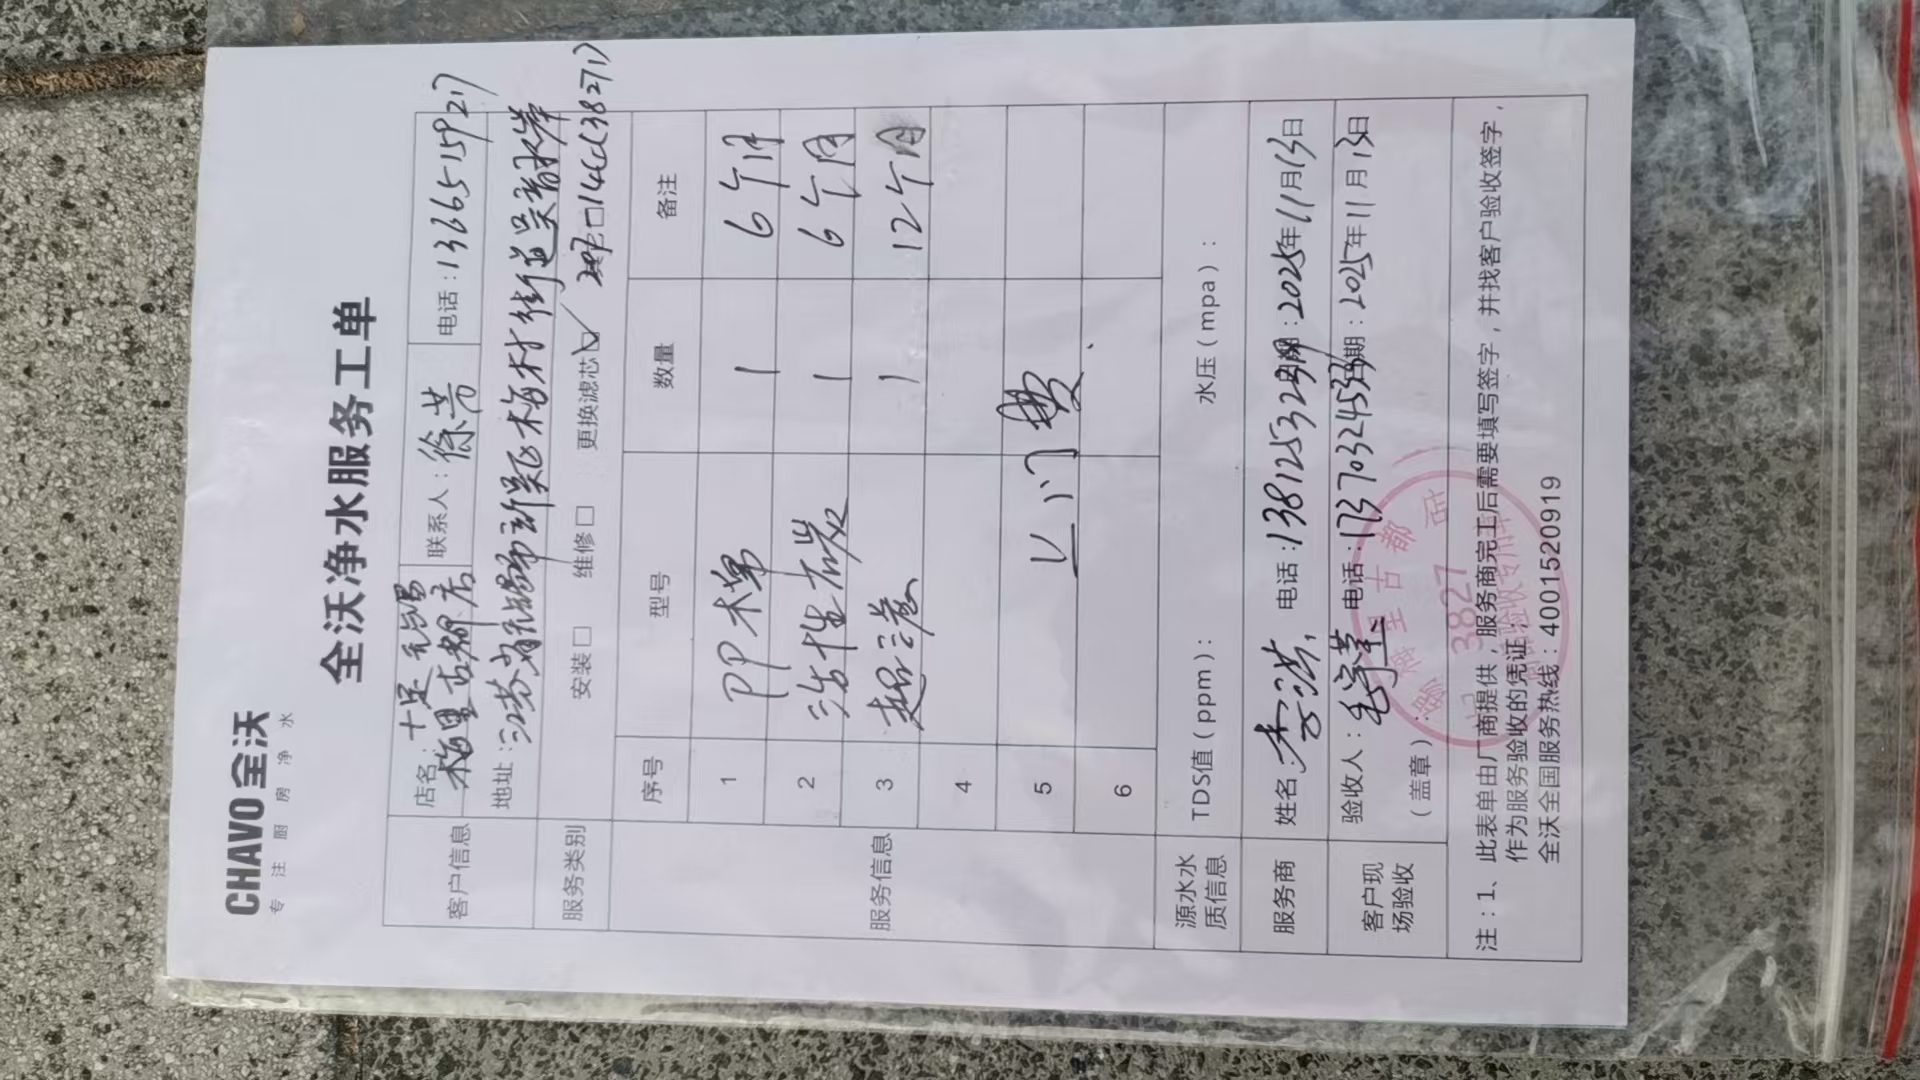 CHAVO 全沃
专注厨房净水
全沃净水服务工单
客户信息
店名: 十足无锡梅里古都店 联系人: 徐芳 电话: 13665159217
地址: 江苏省无锡市新吴区梅村街道吴
服务类别 安装□ 维修□ 更换滤芯☑
服务信息
序号 型号 数量 备注
1 PP棉 1 6个月
2 活性炭 1 6个月
3 超滤 1 12个月
4
5 上门费
6
源水水质信息 TDS值(ppm): 水压(mpa):
服务商 姓名: 李洪 电话: 日期: 2025年11月13日
客户现场验收 验收人: 电话: 日期: 2025年11月13日
(盖章)
梅里古都店
3827
注: 1、此表单由厂商提供, 服务商完工后需要填写签字, 并找客户验收签字,
作为服务验收的凭证;
全沃全国服务热线: 4001520919